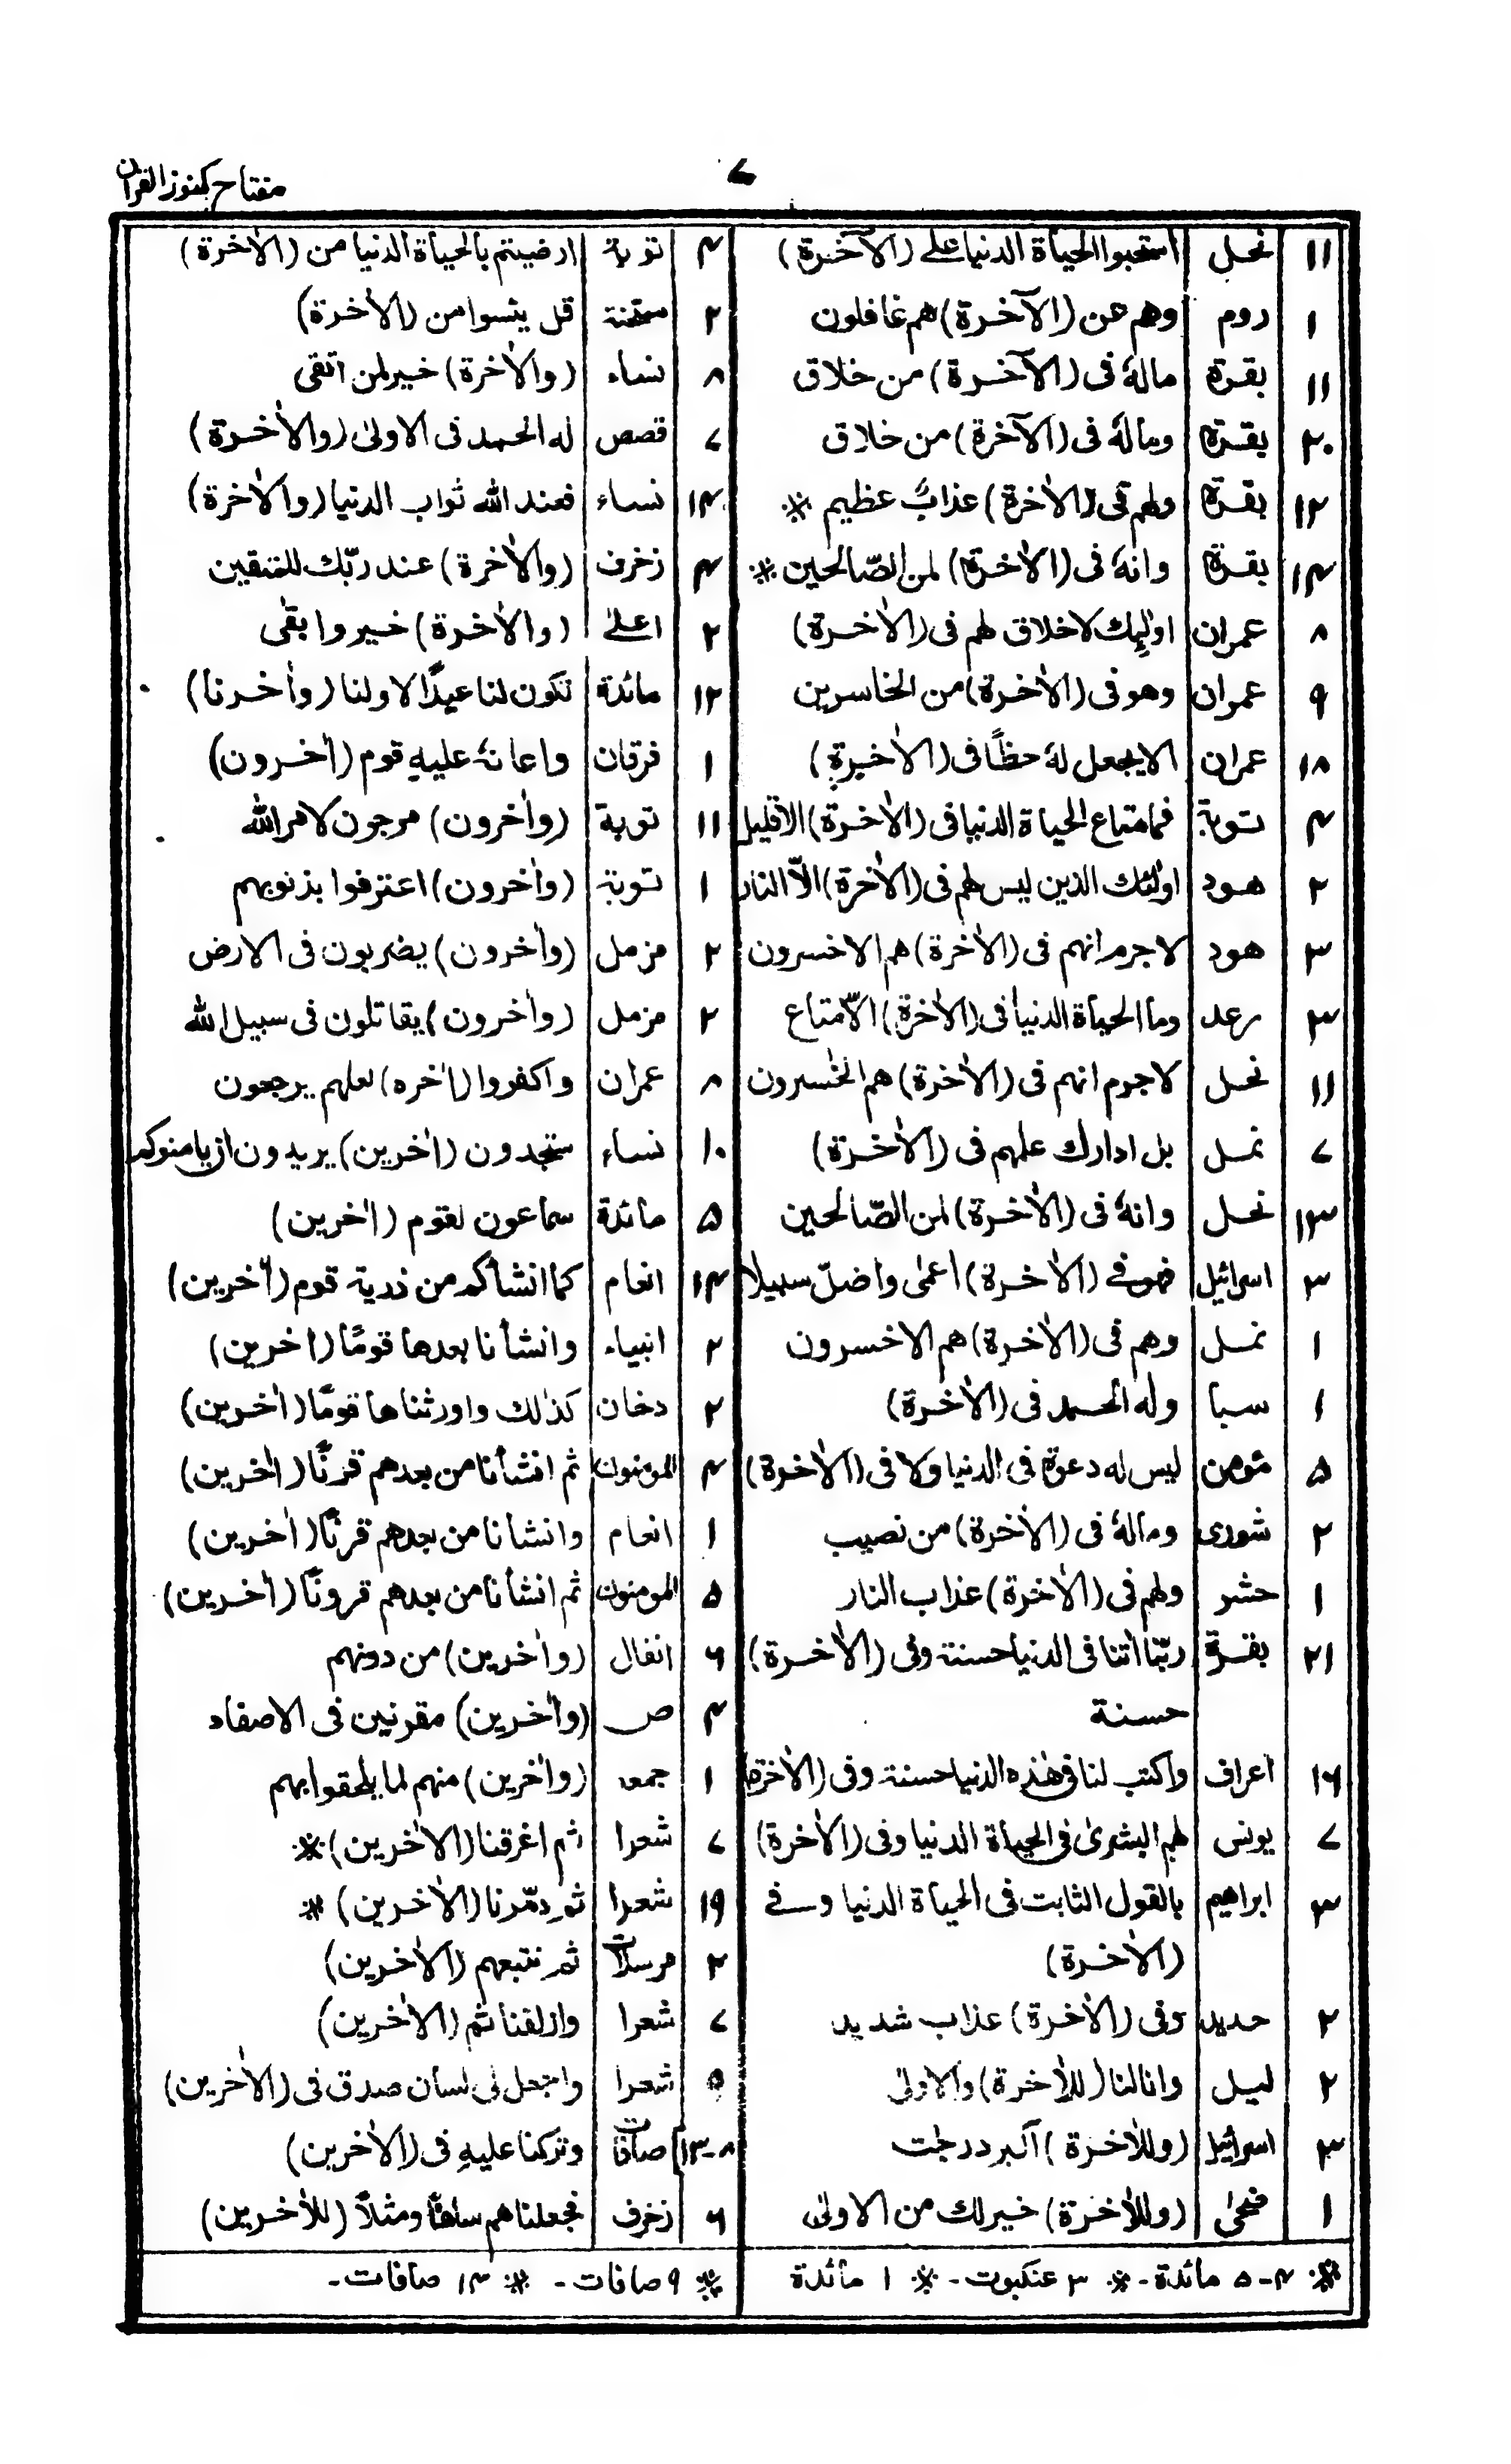 ۷
مفتاح کنوز القرآن
۱۱ نحل استحبوا الحیاة الدنیا علے (الآخرة)
۱ روم وهم عن (الآخرة) هم غافلون
۱۱ بقرة مالهٗ فی (الآخرة) من خلاق
۲۰ بقرة ومالهٗ فی (الآخرة) من خلاق
۱۲ بقرة ولهم فی (الاٰخرة) عذابٌ عظیم ※
۱۴ بقرة وانهٗ فی (الاٰخرة) لمن الصّالحین ※
۸ عمران اولٰٓئِك لاخلاق لهم فی (الاٰخرة)
۹ عمران وهو فی (الاٰخرة) من الخاسرین
۱۸ عمران الا یجعل لهٗ حظًا فی (الاٰخرة)
۴ توبة فما متاع الحیاة الدنیا فی (الاٰخرة) الا قلیل
۲ هود اولٰئك الذین لیس لهم فی (الاٰخرة) الّا النار
۳ هود لاجرم انهم فی (الاٰخرة) هم الاخسرون
۳ رعد وما الحیاة الدنیا فی (الاٰخرة) الّا متاع
۱۱ نحل لاجرم انهم فی (الاٰخرة) هم الخٰسرون
۷ نمل بل ادارك علمهم فی (الاٰخرة)
۱۳ نحل وانهٗ فی (الاٰخرة) لمن الصّالحین
۳ اسرائیل فهو فے (الاٰخرة) اعمٰی واضلّ سبیلا
۱ نمل وهم فی (الاٰخرة) هم الاخسرون
۱ سبا وله الحمد فی (الاٰخرة)
۵ مومن لیس له دعوة فی الدنیا ولا فی (الاٰخرة)
۲ شوری ومالهٗ فی (الاٰخرة) من نصیب
۱ حشر ولهم فی (الاٰخرة) عذاب النار
۲۱ بقرة ربّنا اٰتنا فی الدنیا حسنة وفی (الاٰخرة)
حسنة
۱۶ اعراف واکتب لنا فی هٰذه الدنیا حسنة وفی (الاٰخرة)
۷ یونس لهم البشریٰ فی الحیاة الدنیا وفی (الاٰخرة)
۳ ابراهیم بالقول الثابت فی الحیاة الدنیا وفے
(الاٰخرة)
۲ حدید وفی (الاٰخرة) عذاب شدید
۲ لیل وانا لنا (للاٰخرة) والاولیٰ
۳ اسرائیل (وللاٰخرة) اکبر درجٰت
۱ ضحیٰ (وللاٰخرة) خیر لك من الاولیٰ
※ ۴-۵ مائدة- ※ ۳ عنکبوت- ※ ۱ مائدة
۴ توبة ارضیتم بالحیاة الدنیا من (الاٰخرة)
۲ ممتحنة قل یئسوا من (الاٰخرة)
۸ نساء (والاٰخرة) خیر لمن اتقی
۷ قصص له الحمد فی الاولیٰ (والاٰخرة)
۱۴ نساء فعند الله ثواب الدنیا (والاٰخرة)
۴ زخرف (والاٰخرة) عند ربّك للمتقین
۲ اعلےٰ (والاٰخرة) خیر وابقٰی
۱۲ مائدة تکون لنا عیدًا لاولنا (واٰخرنا)
۱ فرقان واعانهٗ علیهِ قوم (اٰخرون)
۱۱ توبة (واٰخرون) مرجون لامر الله
۱ توبة (واٰخرون) اعترفوا بذنوبهم
۲ مزمل (واٰخرون) یضربون فی الارض
۲ مزمل (واٰخرون) یقاتلون فی سبیل الله
۸ عمران واکفروا (اٰخره) لعلهم یرجعون
۱۰ نساء ستجدون (اٰخرین) یریدون ان یامنوکم
۵ مائدة سماعون لقوم (اٰخرین)
۱۴ انعام کما انشأکم من ذریة قوم (اٰخرین)
۲ انبیاء وانشأنا بعدها قومًا (اٰخرین)
۲ دخان کذٰلك واورثناها قومًا (اٰخرین)
۴ المومنون ثم انشأنا من بعدهم قرنًا (اٰخرین)
۱ انعام وانشأنا من بعدهم قرنًا (اٰخرین)
۵ المومنون ثم انشأنا من بعدهم قرونًا (اٰخرین)
۶ انفال (واٰخرین) من دونهم
۴ ص (واٰخرین) مقرنین فی الاصفاد
۱ جمعه (واٰخرین) منهم لما یلحقوا بهم
۷ شعرا ثم اغرقنا (الاٰخرین) ※
۱۹ شعرا ثم دمّرنا (الاٰخرین) ※
۲ مرسلات ثم نتبعهم (الاٰخرین)
۷ شعرا وازلفنا ثم (الاٰخرین)
۵ شعرا واجعل لی لسان صدق فی (الاٰخرین)
۸-۱۳ صافات وترکنا علیهِ فی (الاٰخرین)
۶ زخرف فجعلناهم سلفًا ومثلًا (للاٰخرین)
※ ۹ صافات- ※ ۱۳ صافات-